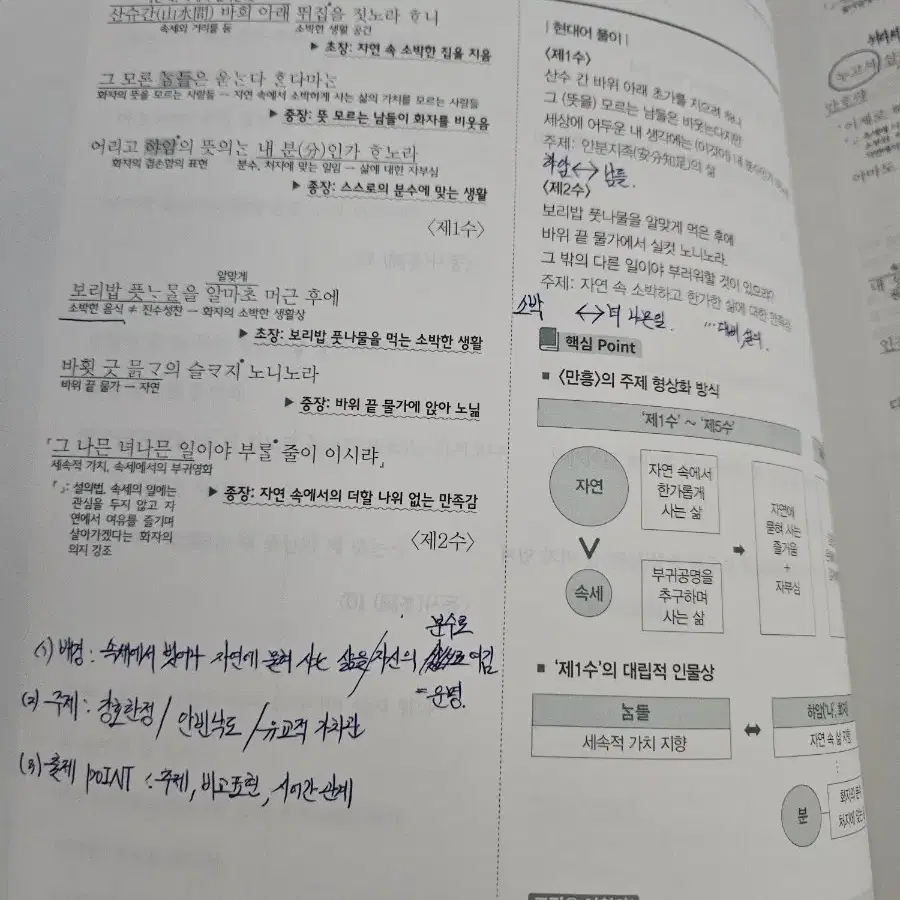 산슈간(山水間) 바회 아래 뛰집을 짓노라 ᄒᆞ니
속세와 거리를 둠 소박한 생활 공간
▶ 초장: 자연 속 소박한 집을 지음
그 모론 ᄂᆞᆷ들은 욷ᄂᆞᆫ다 ᄒᆞᆫ다마ᄂᆞᆫ
화자의 뜻을 모르는 사람들 → 자연 속에서 소박하게 사는 삶의 가치를 모르는 사람들
▶ 중장: 뜻 모르는 남들이 화자를 비웃음
어리고 햐암의 뜻의ᄂᆞᆫ 내 분(分)인가 ᄒᆞ노라
화자의 겸손함의 표현 분수. 처지에 맞는 일임 → 삶에 대한 자부심
▶ 종장: 스스로의 분수에 맞는 생활
〈제1수〉
알맞게
보리밥 픗ᄂᆞ물을 알마초 머근 후에
소박한 음식 ≠ 진수성찬 → 화자의 소박한 생활상
▶ 초장: 보리밥 풋나물을 먹는 소박한 생활
바횟 긋 믉ᄀᆞ의 슬ᄏᆞ지 노니노라
바위 끝 물가 → 자연
▶ 중장: 바위 끝 물가에 앉아 노닒
「그 나믄 녀나믄 일이야 부ᄅᆞᆯ 줄이 이시랴」
세속적 가치, 속세에서의 부귀영화
「 」: 설의법. 속세의 일에는
관심을 두지 않고 자
연에서 여유를 즐기며
살아가겠다는 화자의
의지 강조
▶ 종장: 자연 속에서의 더할 나위 없는 만족감
〈제2수〉
분수로
(1) 배경: 속세에서 벗어나 자연에 묻혀 사는 삶을 자신의 여김
=운명.
(2) 주제: 강호한정 / 안빈낙도 / 유교적 가치관
(3) 출제 POINT : 주제, 비교표현, 시어간 관계
| 현대어 풀이 |
〈제1수〉
산수 간 바위 아래 초가를 지으려 하니
그 (뜻을) 모르는 남들은 비웃는다지만
세상에 어두운 내 생각에는 (이것이) 내
주제: 안분지족(安分知足)의 삶
햐암 ↔ 남들.
〈제2수〉
보리밥 풋나물을 알맞게 먹은 후에
바위 끝 물가에서 실컷 노니노라.
그 밖의 다른 일이야 부러워할 것이 있으랴?
주제: 자연 속 소박하고 한가한 삶에 대한 만족감
소박 ↔ 녀나믄일. … 대비, 설의.
핵심 Point
■ 〈만흥〉의 주제 형상화 방식
'제1수' ~ '제5수'
자연
자연 속에서
한가롭게
사는 삶
속세
부귀공명을
추구하며
사는 삶
자연에
묻혀 사는
즐거움
+
자부심
■ '제1수'의 대립적 인물상
ᄂᆞᆷ들
세속적 가치 지향
햐암('나', 화자)
자연 속 삶 지향
분